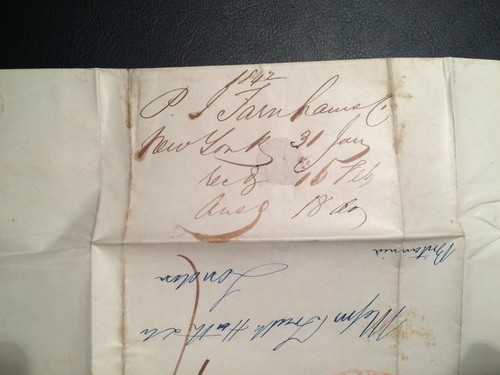 1842
P. J Farnham & Co
New York 31 Jan
rec'd 16 Feb
Ans'd 18 do
Britannia
Messrs Fredk Huth & Co
London